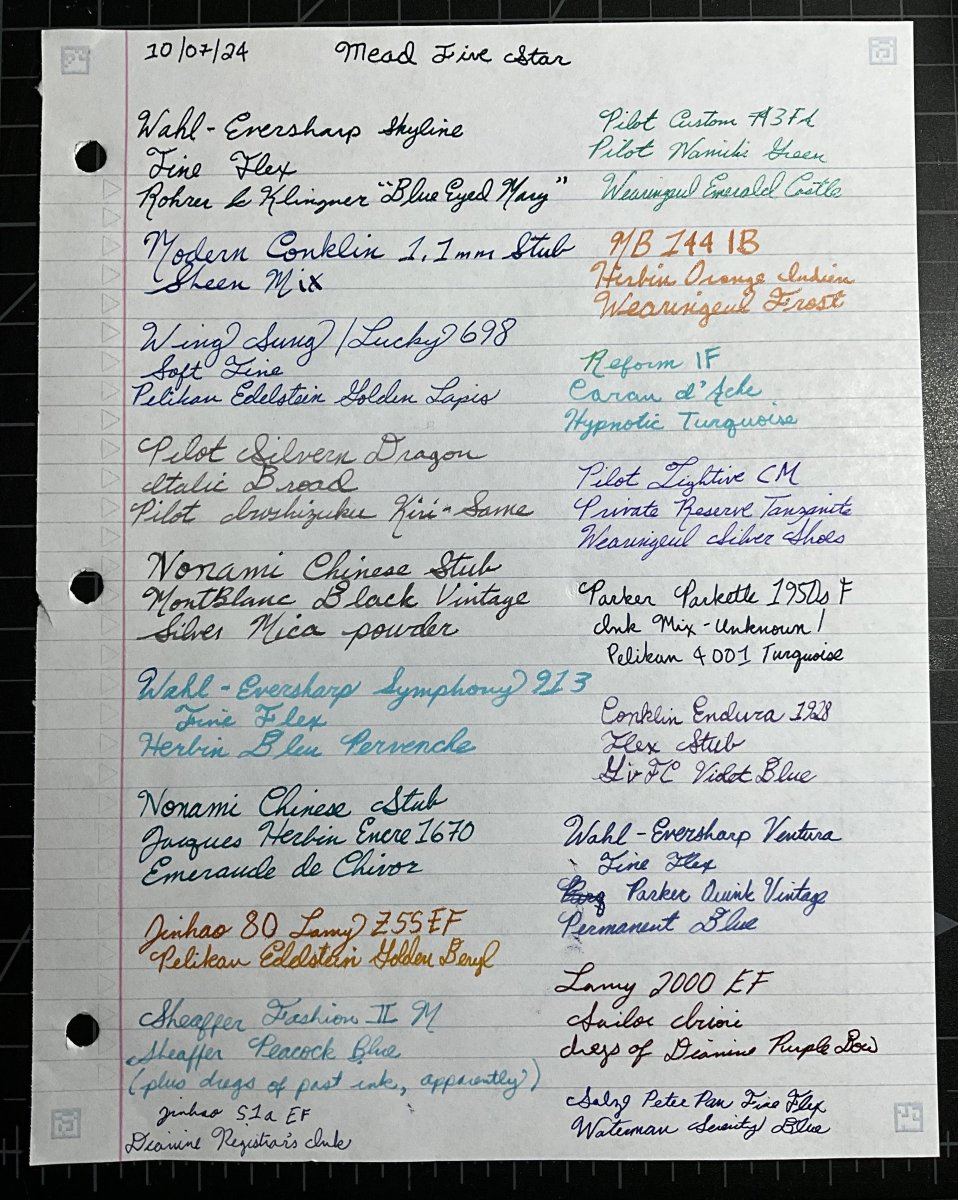 10/07/24 Mead Five Star
Wahl-Eversharp Skyline
Fine Flex
Rohrer & Klingner "Blue Eyed Mary"
Modern Conklin 1.1mm Stub
Sheen Mix
Wing Sung/Lucky 698
Soft Fine
Pelikan Edelstein Golden Lapis
Pilot Silvern Dragon
Italic Broad
Pilot Iroshizuku Kiri-Same
Nonami Chinese Stub
MontBlanc Black Vintage
Silver Mica powder
Wahl-Eversharp Symphony 913
Fine Flex
Herbin Bleu Pervenche
Nonami Chinese Stub
Jacques Herbin Encre 1670
Emeraude de Chivor
Jinhao 80 Lamy Z55 EF
Pelikan Edelstein Golden Beryl
Sheaffer Fashion II M
Sheaffer Peacock Blue
(plus dregs of past ink, apparently)
Jinhao 51a EF
Diamine Registrar's Ink
Pilot Custom
Pilot Namiki Green
Wearingeul Emerald Castle
MB 144 IB
Herbin Orange Indien
Wearingeul Frost
Reform 1F
Caran d'Ache
Hypnotic Turquoise
Pilot Lightive CM
Private Reserve Tanzanite
Wearingeul Silver Shoes
Parker Parkette 1950s F
Ink Mix-Unknown/
Pelikan 4001 Turquoise
Conklin Endura 1928
Flex Stub
GvFC Violet Blue
Wahl-Eversharp Ventura
Fine Flex
Parker Quink Vintage
Permanent Blue
Lamy 2000 EF
Sailor
dregs of Diamine Purple Bow
Salz Peter Pan Fine Flex
Waterman Serenity Blue